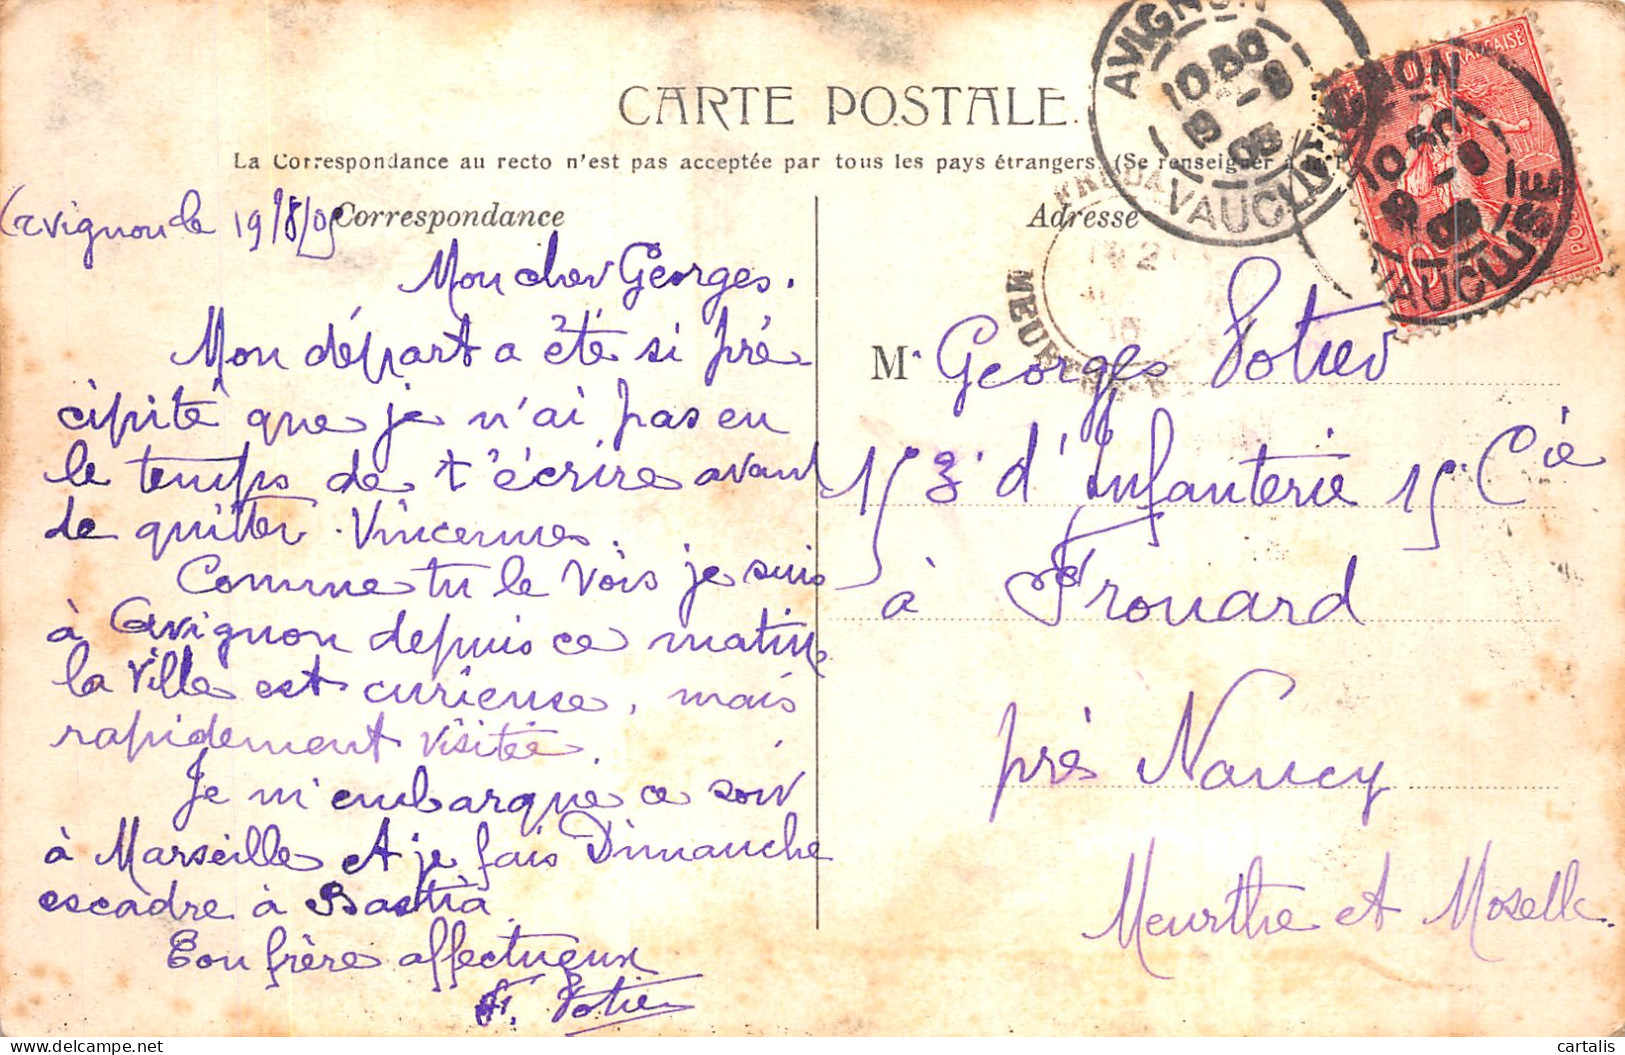 CARTE POSTALE.
La Correspondance au recto n'est pas acceptée par tous les pays étrangers. (Se renseigner à la P
Correspondance
Adresse
Avignon le 19/8/05
Mon cher Georges.
Mon départ a été si pré
cipité que je n'ai pas eu
le temps de t'écrire avant
de quitter Vincennes.
Comme tu le vois je suis
à Avignon depuis ce matin
la ville est curieuse, mais
rapidement visitée.
Je m'embarque ce soir
à Marseille et je fais Dimanche
escadre à Bastia.
Ton frère affectueux
Potier
Mr Georges Potier
153e d'Infanterie 15e Cie
à Frouard
près Nancy
Meurthe et Moselle.
AVIGNON
10 50
19 -8
05
VAUCLUSE
AVIGNON
10 50
19 -8
05
VAUCLUSE
FRANÇAISE
POSTES
FROUARD
MEURTHE
cartalis